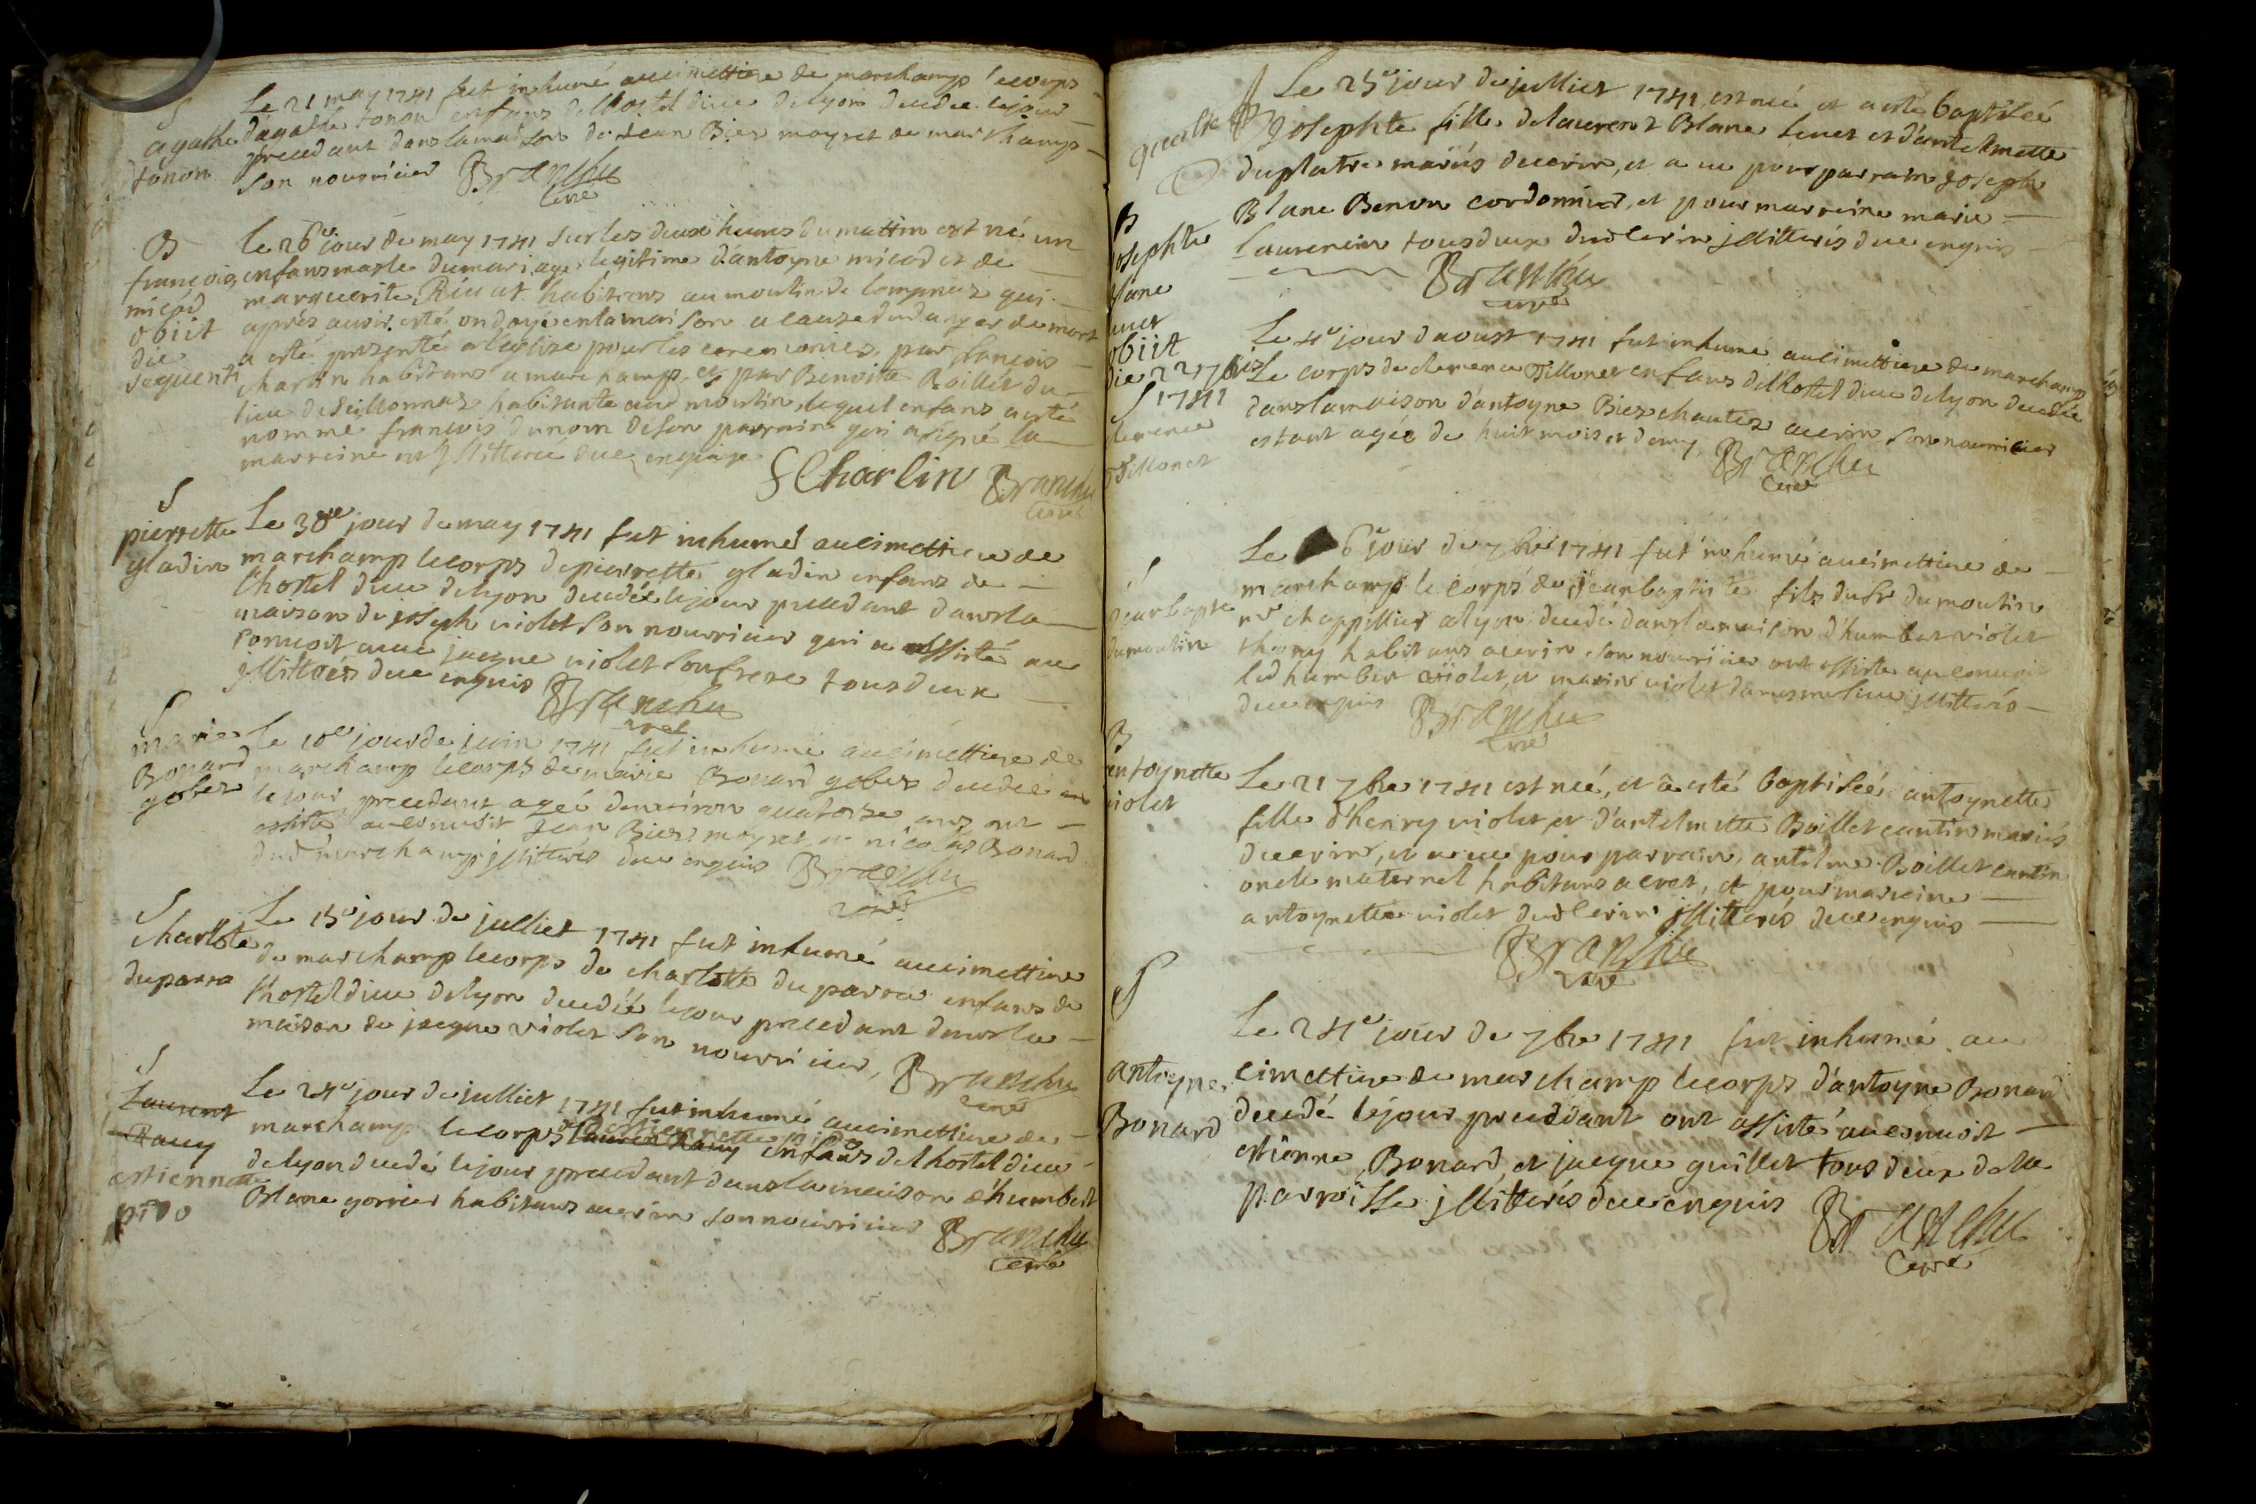 S
agathe
tonon
Le 21 may 1741 fut inhumé au cimettiere de marchamp le corps
d'agathe tonon enfans de l'hostel dieu de lyon decedée le jour
precedant dans la maison de Jean Bier mayret de marchamp
son nourricier Branchu
curé
B
françois
micod
obiit
die
sequenti
le 26e jour de may 1741 sur les deux heures du mattin est né un
enfans masle du mariage legitime d'antoyne micod et de
marguerite habitans au moulin de lompnaz qui
aprés avoir esté ondoyé en la maison a cause du danger de mort
a esté presenté a l'eglise pour les ceremonies par françois
charlin habitans a marchamp et par Benoitte Boillet du
lieu de seillonnaz habitante aud moulin, lequel enfans a esté
nommé francois du nom de son parrain qui a signé la
marreine est jllitterée due enquise
F Charlin Branchu
curé
S
pierrette
gladin
Le 30e jour de may 1741 fut inhumé au cimettiere de
marchamp le corps de pierrette gladin enfans de
l'hostel dieu de lyon decedée le jour precedant dans la
maison de joseph violet son nourricier qui a assisté au
convoit avec jacque violet son frere tous deux
jllitterés due enquis Branchu
curé
S
marie
Bonard
gober
le 10e jour de juin 1741 fut inhumé au cimettiere de
marchamp le corps de marie Bonard gober decedée
le jour precedant agée d'environ quatorze ans ont
assisté au convoit Jean Bier mayret et nicolas Bonard
dud marchamp jllitterés due enquis Branchu
curé
S
charlote
duparra
Le 15e jour de julliet 1741 fut inhumé au cimettiere
de marchamp le corps de charlotte du parra enfans de
l'hostel dieu de lyon decedée le jour precedant dans la
maison de jacque violet son nourricier, Branchu
curé
S
Laurent
Ramy
estiennette
pivo
Le 24e jour de julliet 1741 fut inhumé au cimettiere de
marchamp le corps d'estiennette pivo
laurent Ramy enfans de l'hostel dieu
de lyon decedé le jour precedant dans la maison d'humbert
Blanc gorrier habitans a cerin son nourricier Branchu
curé
B
josephte
Blanc
obiit
die 22 7bris
1741
Le 25e jour de julliet 1741, est née et a esté baptisée
Josephte fille de laurent Blanc et d'antelmette
duplatre mariés de cerin, et a eu pour parrain Joseph
Blanc Benon cordonnier, et pour marreine marie
laurencin tous deux dud cerin jllitterés due enquis
Branchu
curé
S
clemence
Le 4e jour d'aoust 1741 fut inhumé au cimettiere de marchamp
Le corps de clemence enfans de l'hostel dieu de lyon decedée
dans la maison d'antoyne Bier chautez a cerin son nourricier
estant agée de huit mois et demy, Branchu
curé
S
jean bapte
dumoulin
Le 6e jour de 7bre 1741 fut inhumé au cimettiere de
marchamp le corps de jean baptiste fils du sr dumoulin
mr chappellier a lyon decedé dans la maison d'humbert violet
thomy habitans a cerin son nourricier ont assisté au convoit
led humbert violet, et marin violet du mesme lieu jllitterés
due enquis Branchu
curé
B
antoynette
violet
Le 21 7bre 1741 est née, et a esté baptisée antoynette
fille d'henry violet et d'antelmette Boillet cantin mariés
de cerin, et a eu pour parrain, antelme Boillet cantin
oncle maternel habitans a crept, et pour marreine
antoynette violet dud cerin jllitterés due enquis
Branchu
curé
S
antoyne
Bonard
Le 24e jour de 7bre 1741 fut inhumé au
cimettiere de marchamp le corps d'antoyne Bonard
decedé le jour precedant ont assisté au convoit
estienne Bonard, et jacque guillet tous deux de la
parroisse jllitterés due enquis Branchu
curé